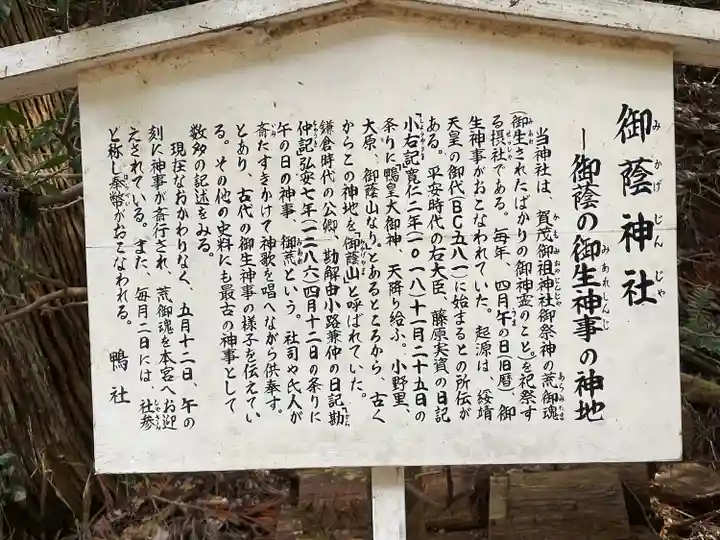 御蔭神社
―御蔭の御生神事の神地
当神社は、賀茂御祖神社御祭神の荒御魂
(御生されたばかりの御神霊のこと。)を祀祭す
る摂社である。毎年、四月午の日(旧暦、御
生神事がおこなわれていた。起源は、綏靖
天皇の御代(BC五八一)に始まるとの所伝が
ある。平安時代の右大臣、藤原実資の日記
小右記寛仁二年(一〇一八)十一月二十五日の
条りに「鴨皇大御神、天降り給ふ。小野里、
大原、御蔭山なり」とあるところから、古く
からこの神地を「御蔭山」と呼ばれていた。
鎌倉時代の公卿、勘解由小路兼仲の日記勘
仲記弘安七年(一二八六)四月十二日の条りに
午の日の神事、御荒という。社司や氏人が
斎たすきかけて神歌を唱へながら供奉す。
とあり、古代の御生神事の様子を伝えてい
る。その他の史料にも最古の神事として
数多の記述をみる。
現在なおかわりなく、五月十二日、午の
刻に神事が斎行され、荒御魂を本宮へお迎
えされている。また、毎月二日には、社参
と称し奉幣がおこなわれる。
鴨社